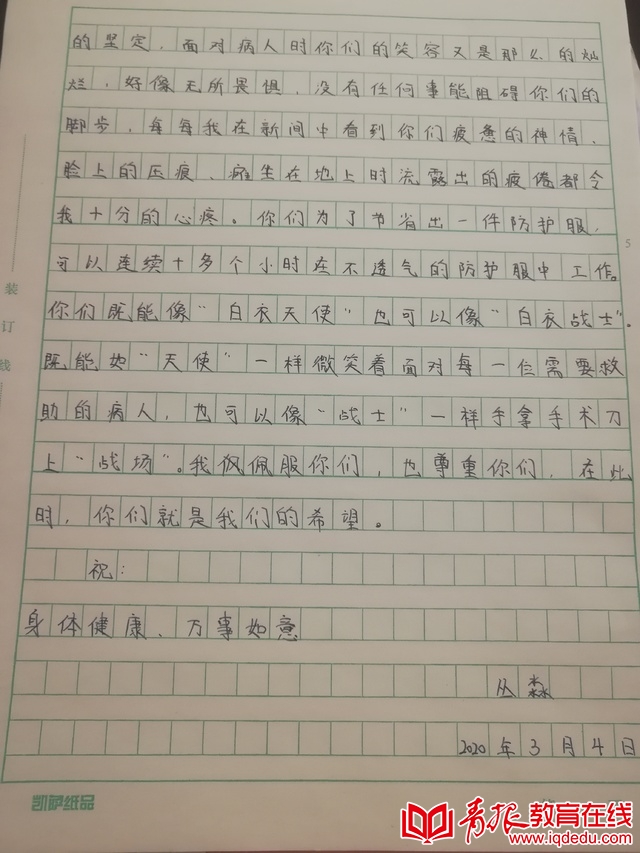 的坚定，面对病人时你们的笑容又是那么的灿
烂，好像无所畏惧，没有任何事能阻碍你们的
脚步，每每我在新闻中看到你们疲惫的神情、
脸上的压痕、瘫坐在地上时流露出的疲倦都令
我十分的心疼。你们为了节省出一件防护服，
可以连续十多个小时在不透气的防护服中工作。
你们既能像“白衣天使”也可以像“白衣战士”。
既能如“天使”一样微笑着面对每一位需要救
助的病人，也可以像“战士”一样手拿手术刀
上“战场”。我佩服你们，也尊重你们，在此
时，你们就是我们的希望。
祝：
身体健康、万事如意
丛淼
2020年3月4日
装
订
线
5
凯萨纸品
青报教育在线
www.iqdedu.com